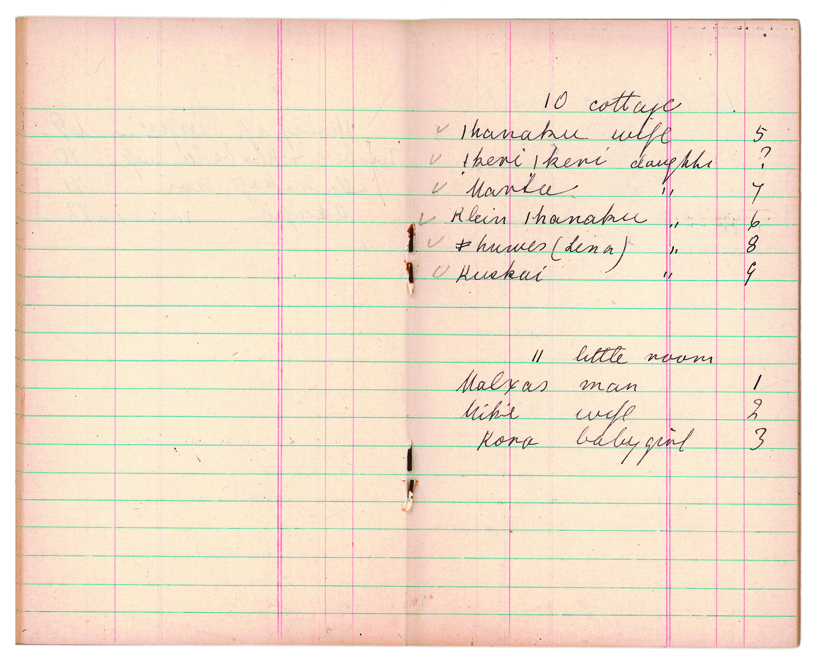 10 cottage
ǀhanaku wife 5
!keri ǀkeri daughter ?
Martee " 7
Klein ǀhanaku " 6
ǂhuwes (Lena) " 8
Kuskai " 9
" little room
Malxas man 1
Mikie wife 2
Kora baby girl 3